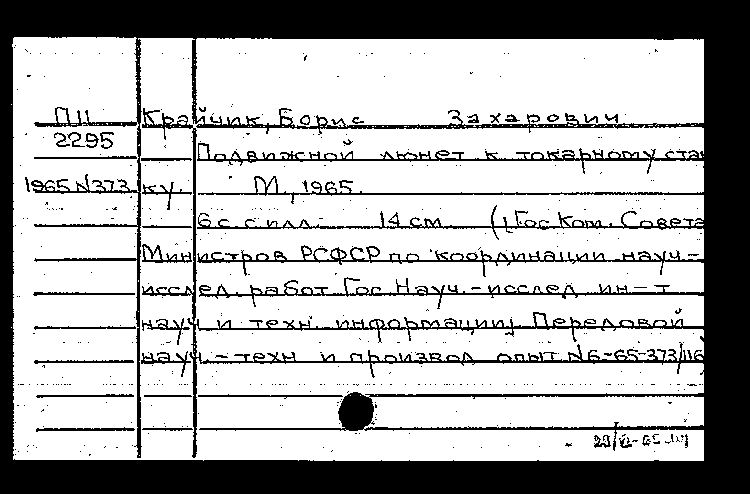 П11 Крайчик, Борис Захарович
2295
Подвижной люнет к токарному ста
1965 N373 ку. М., 1965.
6 с. с илл. 14 см. ([Гос. Ком. Совета
Министров РСФСР по координации науч.-
исслед. работ Гос. Науч.-исслед. ин-т
науч. и техн. информации] Передовой
науч.-техн. и производ. опыт N6-65-373/116